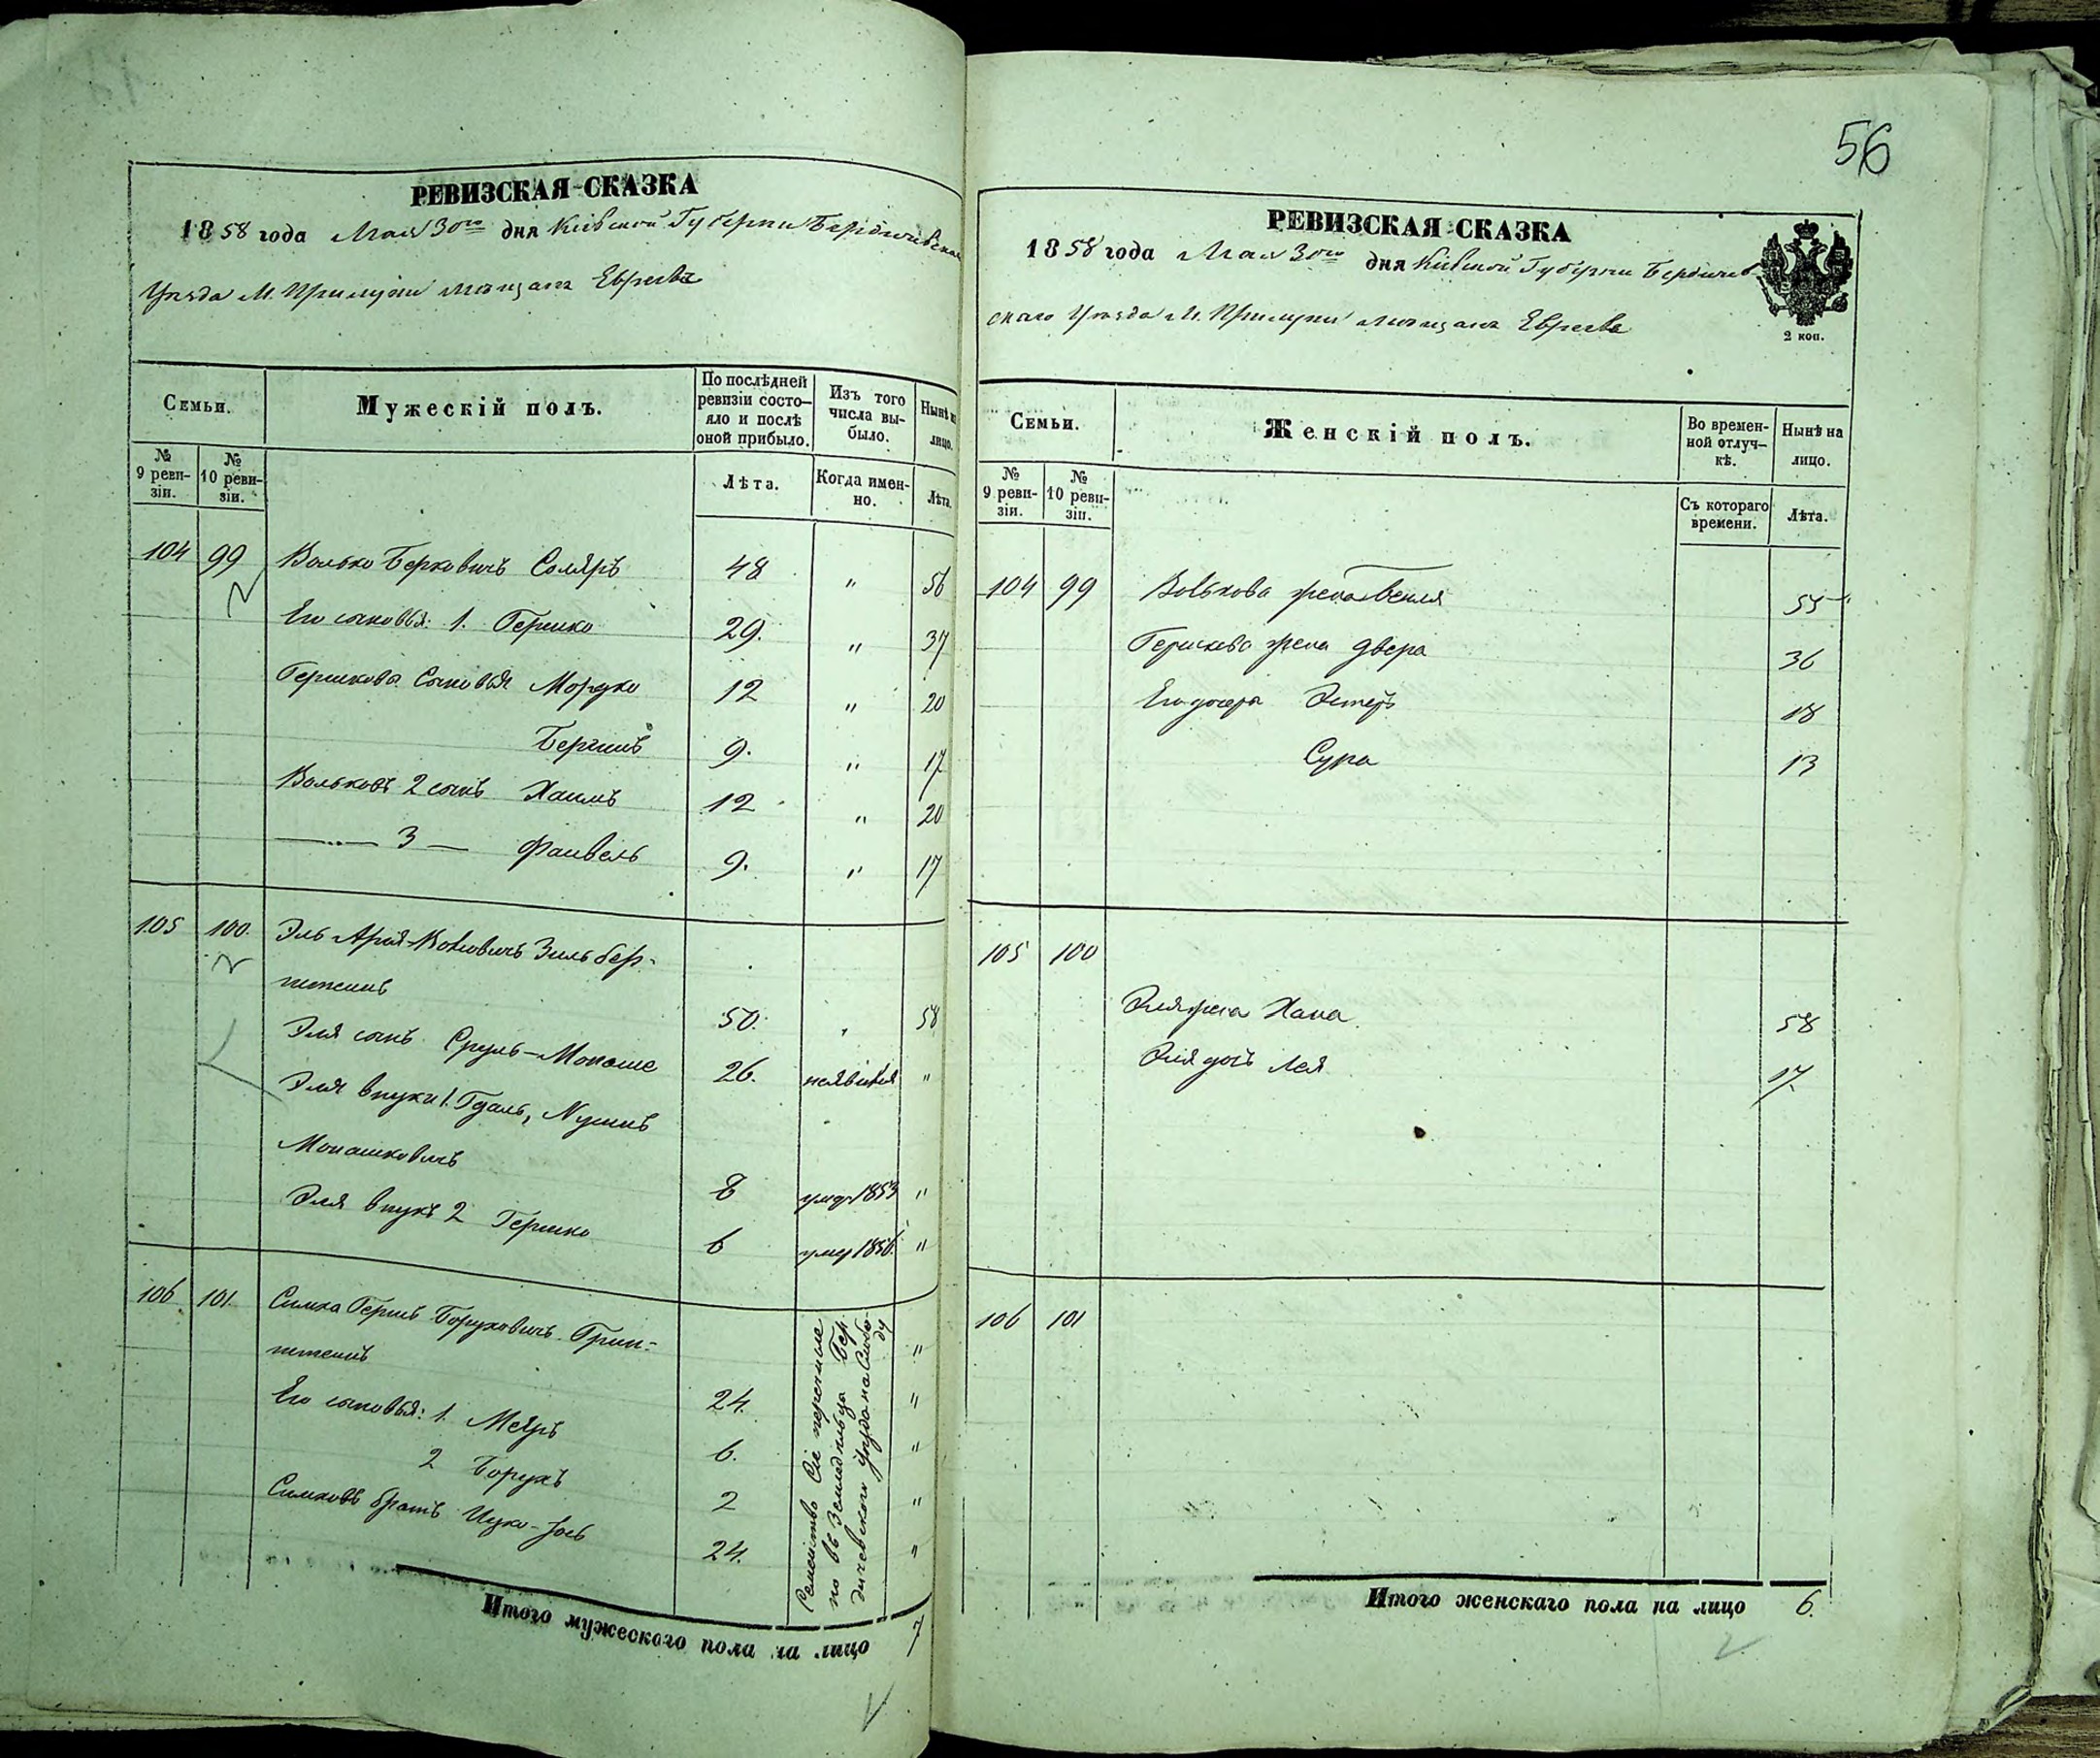 56
РЕВИЗСКАЯ СКАЗКА
1858 года Мая 30го дня Кіевской Губерніи Бердичевскаго
Уѣзда М. Прилуки мѣщанъ Евреевъ
Семьи.
Мужескій полъ.
По послѣдней ревизіи состо-
яло и послѣ
оной прибыло.
Изъ того
числа вы-
было.
Нынѣ на
лицо.
№ 9 реви-
зіи.
№ 10 реви-
зіи.
Лѣта.
Когда имен-
но.
Лѣта.
104 99 Волько Берковичъ Соляръ 48 " 56
Его сыновья: 1. Гершко 29. " 37
Гершкова Сыновья Мордко 12 " 20
Бершъ 9. " 17
Вольковъ 2 сынъ Хаимъ 12 " 20
— " — 3 — Файвель 9. " 17
105 100. Эль Арія-Вольковичъ Зильбер-
штейнъ 50. " 58
Эля сынъ Сруль-Монаше 26. неявился "
Эля внуки 1. Гдаль,
Монашковичъ 8 умер 1853 "
Эля внукъ 2 Гершко 6 умер 1856. "
106 101. Симха Гершъ Боруховичъ Грин-
штейнъ 24. "
Его сыновья: 1. Меяръ 6. "
2 Борухъ 2 "
Симховъ братъ Ицко-Іось 24. "
Семейство Сіе перечисле
но въ Земледѣльца Бер
дичевского Уѣзда на Слобо-
ду
Итого мужескаго пола на лицо 7
РЕВИЗСКАЯ СКАЗКА
1858 года Мая 30го дня Кіевской Губерніи Бердичев-
скаго Уѣзда М. Прилуки мѣщанъ Евреевъ
2 коп.
Семьи.
Женскій полъ.
Во времен-
ной отлуч-
кѣ.
Нынѣ на
лицо.
№ 9 реви-
зіи.
№ 10 реви-
зіи.
Съ котораго
времени.
Лѣта.
104 99 Волькова жена Бейля 55
Гершкова жена Двера 36
Его дочери Эстеръ 18
Сура 13
105 100
Эля жена Хана 58
Эля дочь Лея 17.
106 101
Итого женскаго пола на лицо 6.